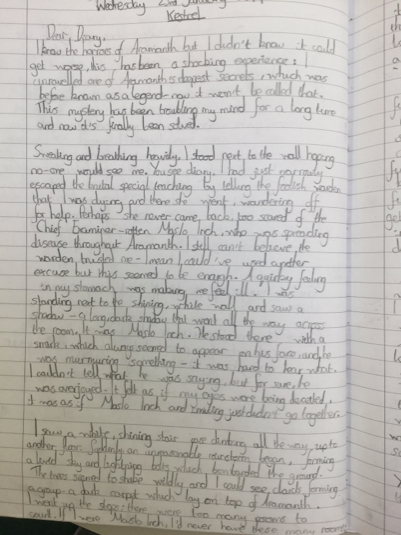 Wednesday 23rd January
Kestrel
Dear Diary,
I know the horrors of Aramanth but I didn't know it could
get worse, this has been a shocking experience: I
unravelled one of Aramanth's deepest secrets, which was
before known as a legend - now it won't be called that.
This mystery has been troubling my mind for a long time
and now it's finally been solved.
Sneaking and breathing heavily, I stood next to the wall hoping
no-one would see me. You see diary, I had just narrowly
escaped the brutal special teaching by telling the foolish warden
that I was dying and there she went, wandering off
for help. Perhaps she never came back, too scared of the
Chief Examiner - often Maslo Inch, who was spreading
disease throughout Aramanth. I still can't believe the
warden, trusted me - I mean I could've used another
excuse but this seemed to be enough. A feeling
in my stomach was making me feel ill. I was
standing next to the shining, white wall and saw a
shadow - a long, dark shadow that went all the way across
the room, it was Maslo Inch. He stood there with a
smirk, which always seemed to appear on his face, and he
was murmuring something - it was hard to hear what.
I couldn't tell what he was saying, but for sure, he
was overjoyed. It felt as if my eyes were being deceived,
it was as if Maslo Inch and smiling just didn't go together.
I saw a white, shining stair case climbing all the way up to
another floor. Suddenly an unreasonable rainstorm began, forming
a sky and lightning bolts which bombarded the ground.
The trees seemed to shake wildly and I could see clouds forming
a group - a dark carpet which lay on top of Aramanth.
I went up the steps: there were too many rooms to
count. If I were Maslo Inch, I'd never have these many rooms